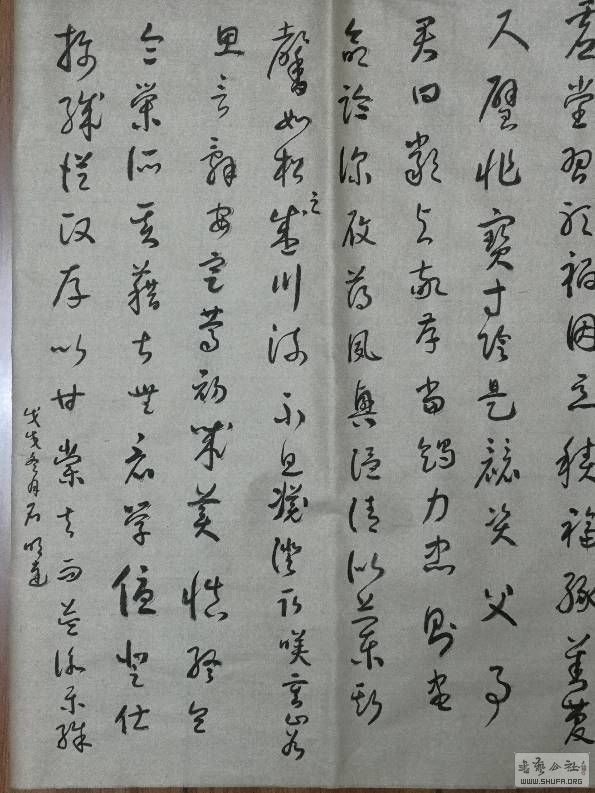 虚堂習聽禍因惡積福緣善慶
尺璧非寶寸陰是競資父事
君曰嚴與敬孝當竭力忠則盡
命臨深履薄夙興温凊似蘭斯
馨如松之盛川流不息淵澄取暎容止若
思言辭安定篤初誠美慎終宜
令榮所基藉甚無竟學優登仕
攝職從政存以甘棠去而益詠樂殊
戊戌冬月石明達
书艺公社
WWW.SHUFA.ORG